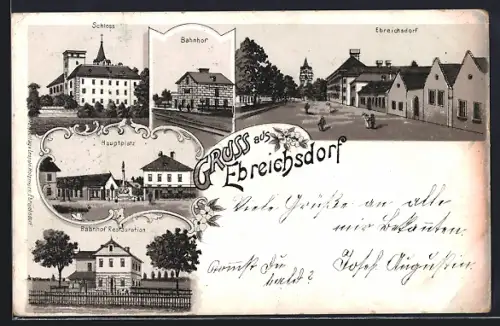 Schloss
Bahnhof
Ebreichsdorf
Hauptplatz
GRUSS aus
Ebreichsdorf
Bahnhof Restauration
Viele Grüße an alle
mir bekannten.
Kommst du
bald?
Josef Augustin.